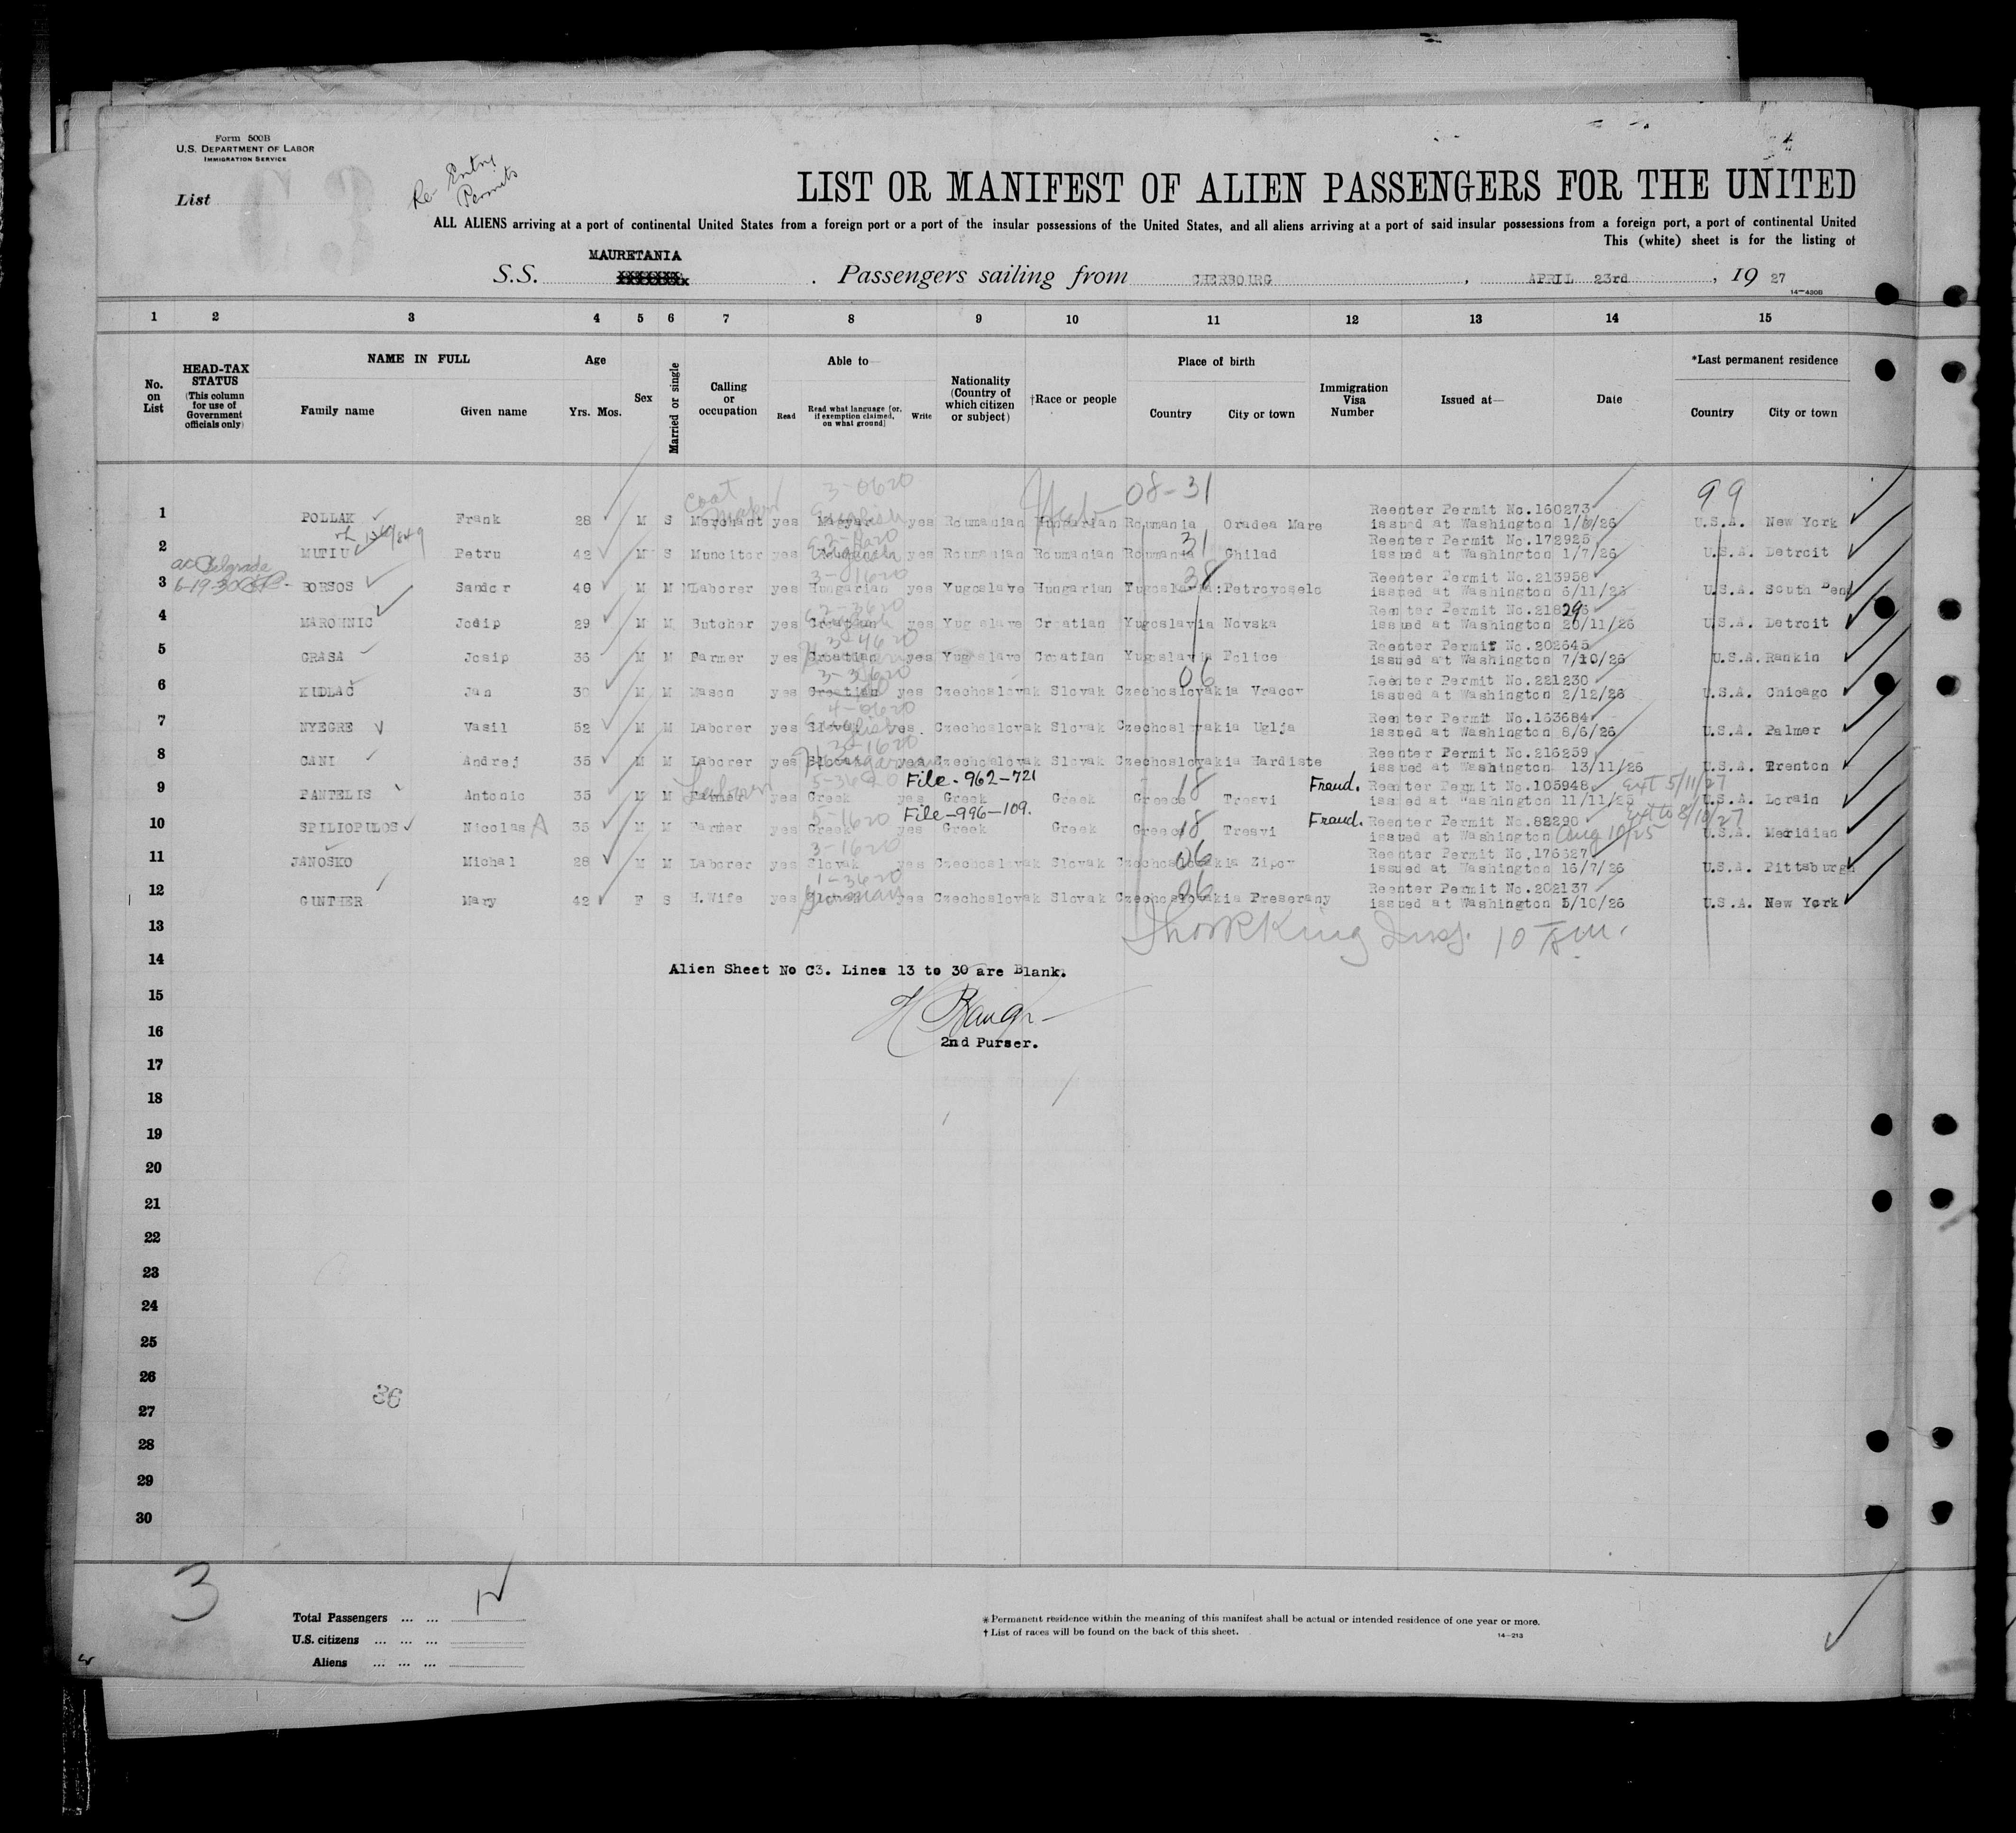 Form 500B
U.S. DEPARTMENT OF LABOR
IMMIGRATION SERVICE
List
Re-Entry
Permits
LIST OR MANIFEST OF ALIEN PASSENGERS FOR THE UNITED
ALL ALIENS arriving at a port of continental United States from a foreign port or a port of the insular possessions of the United States, and all aliens arriving at a port of said insular possessions from a foreign port, a port of continental United
This (white) sheet is for the listing of
MAURETANIA
S.S. Passengers sailing from CHERBOURG, APRIL 23rd, 19 27
14-430B
1 2 3 4 5 6 7 8 9 10 11 12 13 14 15
No. on List
HEAD-TAX STATUS (This column for use of Government officials only)
NAME IN FULL
Family name Given name
Age
Yrs. Mos.
Sex
Married or single
Calling or occupation
Able to
Read Read what language [or, if exemption claimed, on what ground] Write
Nationality (Country of which citizen or subject)
†Race or people
Place of birth
Country City or town
Immigration Visa Number
Issued at—
Date
*Last permanent residence
Country City or town
Coat 3-0620 08-31 99
1 POLLAK Frank 28 M S Merchant yes Magyar yes Roumanian Hungarian Roumania Oradea Mare Reenter Permit No.160273 issued at Washington 1/6/26 U.S.A. New York
2 MUTIU Petru 42 M S Muncitor yes yes Roumanian Roumanian Roumania 31 Chilad Reenter Permit No.172925 issued at Washington 1/7/26 U.S.A. Detroit
Belgrade
6-19-30
3 BORSOS Sandor 40 M M Laborer yes Hungarian yes Yugoslave Hungarian Yugoslavia:Petrovoselo Reenter Permit No.213958 issued at Washington 6/11/26 U.S.A. South Bend
4 MAROHNIC Josip 29 M M Butcher yes Croatian yes Yugoslave Croatian Yugoslavia Novska Reenter Permit No.218296 issued at Washington 20/11/26 U.S.A. Detroit
5 GRASA Josip 36 M M Farmer yes Croatian yes Yugoslave Croatian Yugoslavia Police Reenter Permit No.202645 issued at Washington 7/10/26 U.S.A. Rankin
6 KUDLAČ Jan 30 M M Mason yes Croatian yes Czechoslovak Slovak Czechoslovakia 06 Vracov Reenter Permit No.221230 issued at Washington 2/12/26 U.S.A. Chicago
7 NYEGRE Vasil 52 M M Laborer yes Slovak yes. Czechoslovak Slovak Czechoslovakia Uglja Reenter Permit No.163684 issued at Washington 8/6/26 U.S.A. Palmer
8 CANI Andrej 35 M M Laborer yes Slovak yes Czechoslovak Slovak Czechoslovakia Hardiste Reenter Permit No.216259 issued at Washington 13/11/26 U.S.A. Trenton
File-962-721
9 PANTELIS Antonio 35 M M Farmer Laborer yes Greek yes Greek Greek Greece 18 Tresvi Fraud. Reenter Permit No.105948 issued at Washington 11/11/25 Ext 5/11/27 U.S.A. Lorain
File-996-109.
10 SPILIOPULOS Nicolas A 35 M M Farmer yes Greek yes Greek Greek Greece 18 Tresvi Fraud. Reenter Permit No.82290 issued at Washington Aug 10/25 Ext to 8/10/27 U.S.A. Meridian
11 JANOSKO Michal 28 M M Laborer yes Slovak yes Czechoslovak Slovak Czechoslovakia 06 Zipov Reenter Permit No.176627 issued at Washington 16/7/26 U.S.A. Pittsburgh
12 GUNTHER Mary 42 F S H.Wife yes German yes Czechoslovak Slovak Czechoslovakia 06 Preserany Reenter Permit No.202137 issued at Washington 5/10/26 U.S.A. New York
13
14
Alien Sheet No C3. Lines 13 to 30 are Blank.
15
16
2nd Purser.
17
18
19
20
21
22
23
24
25
26
36
27
28
29
30
3
Total Passengers ... ... 12
U.S. citizens ... ... ...
Aliens ... ... ...
* Permanent residence within the meaning of this manifest shall be actual or intended residence of one year or more.
† List of races will be found on the back of this sheet.
14-213